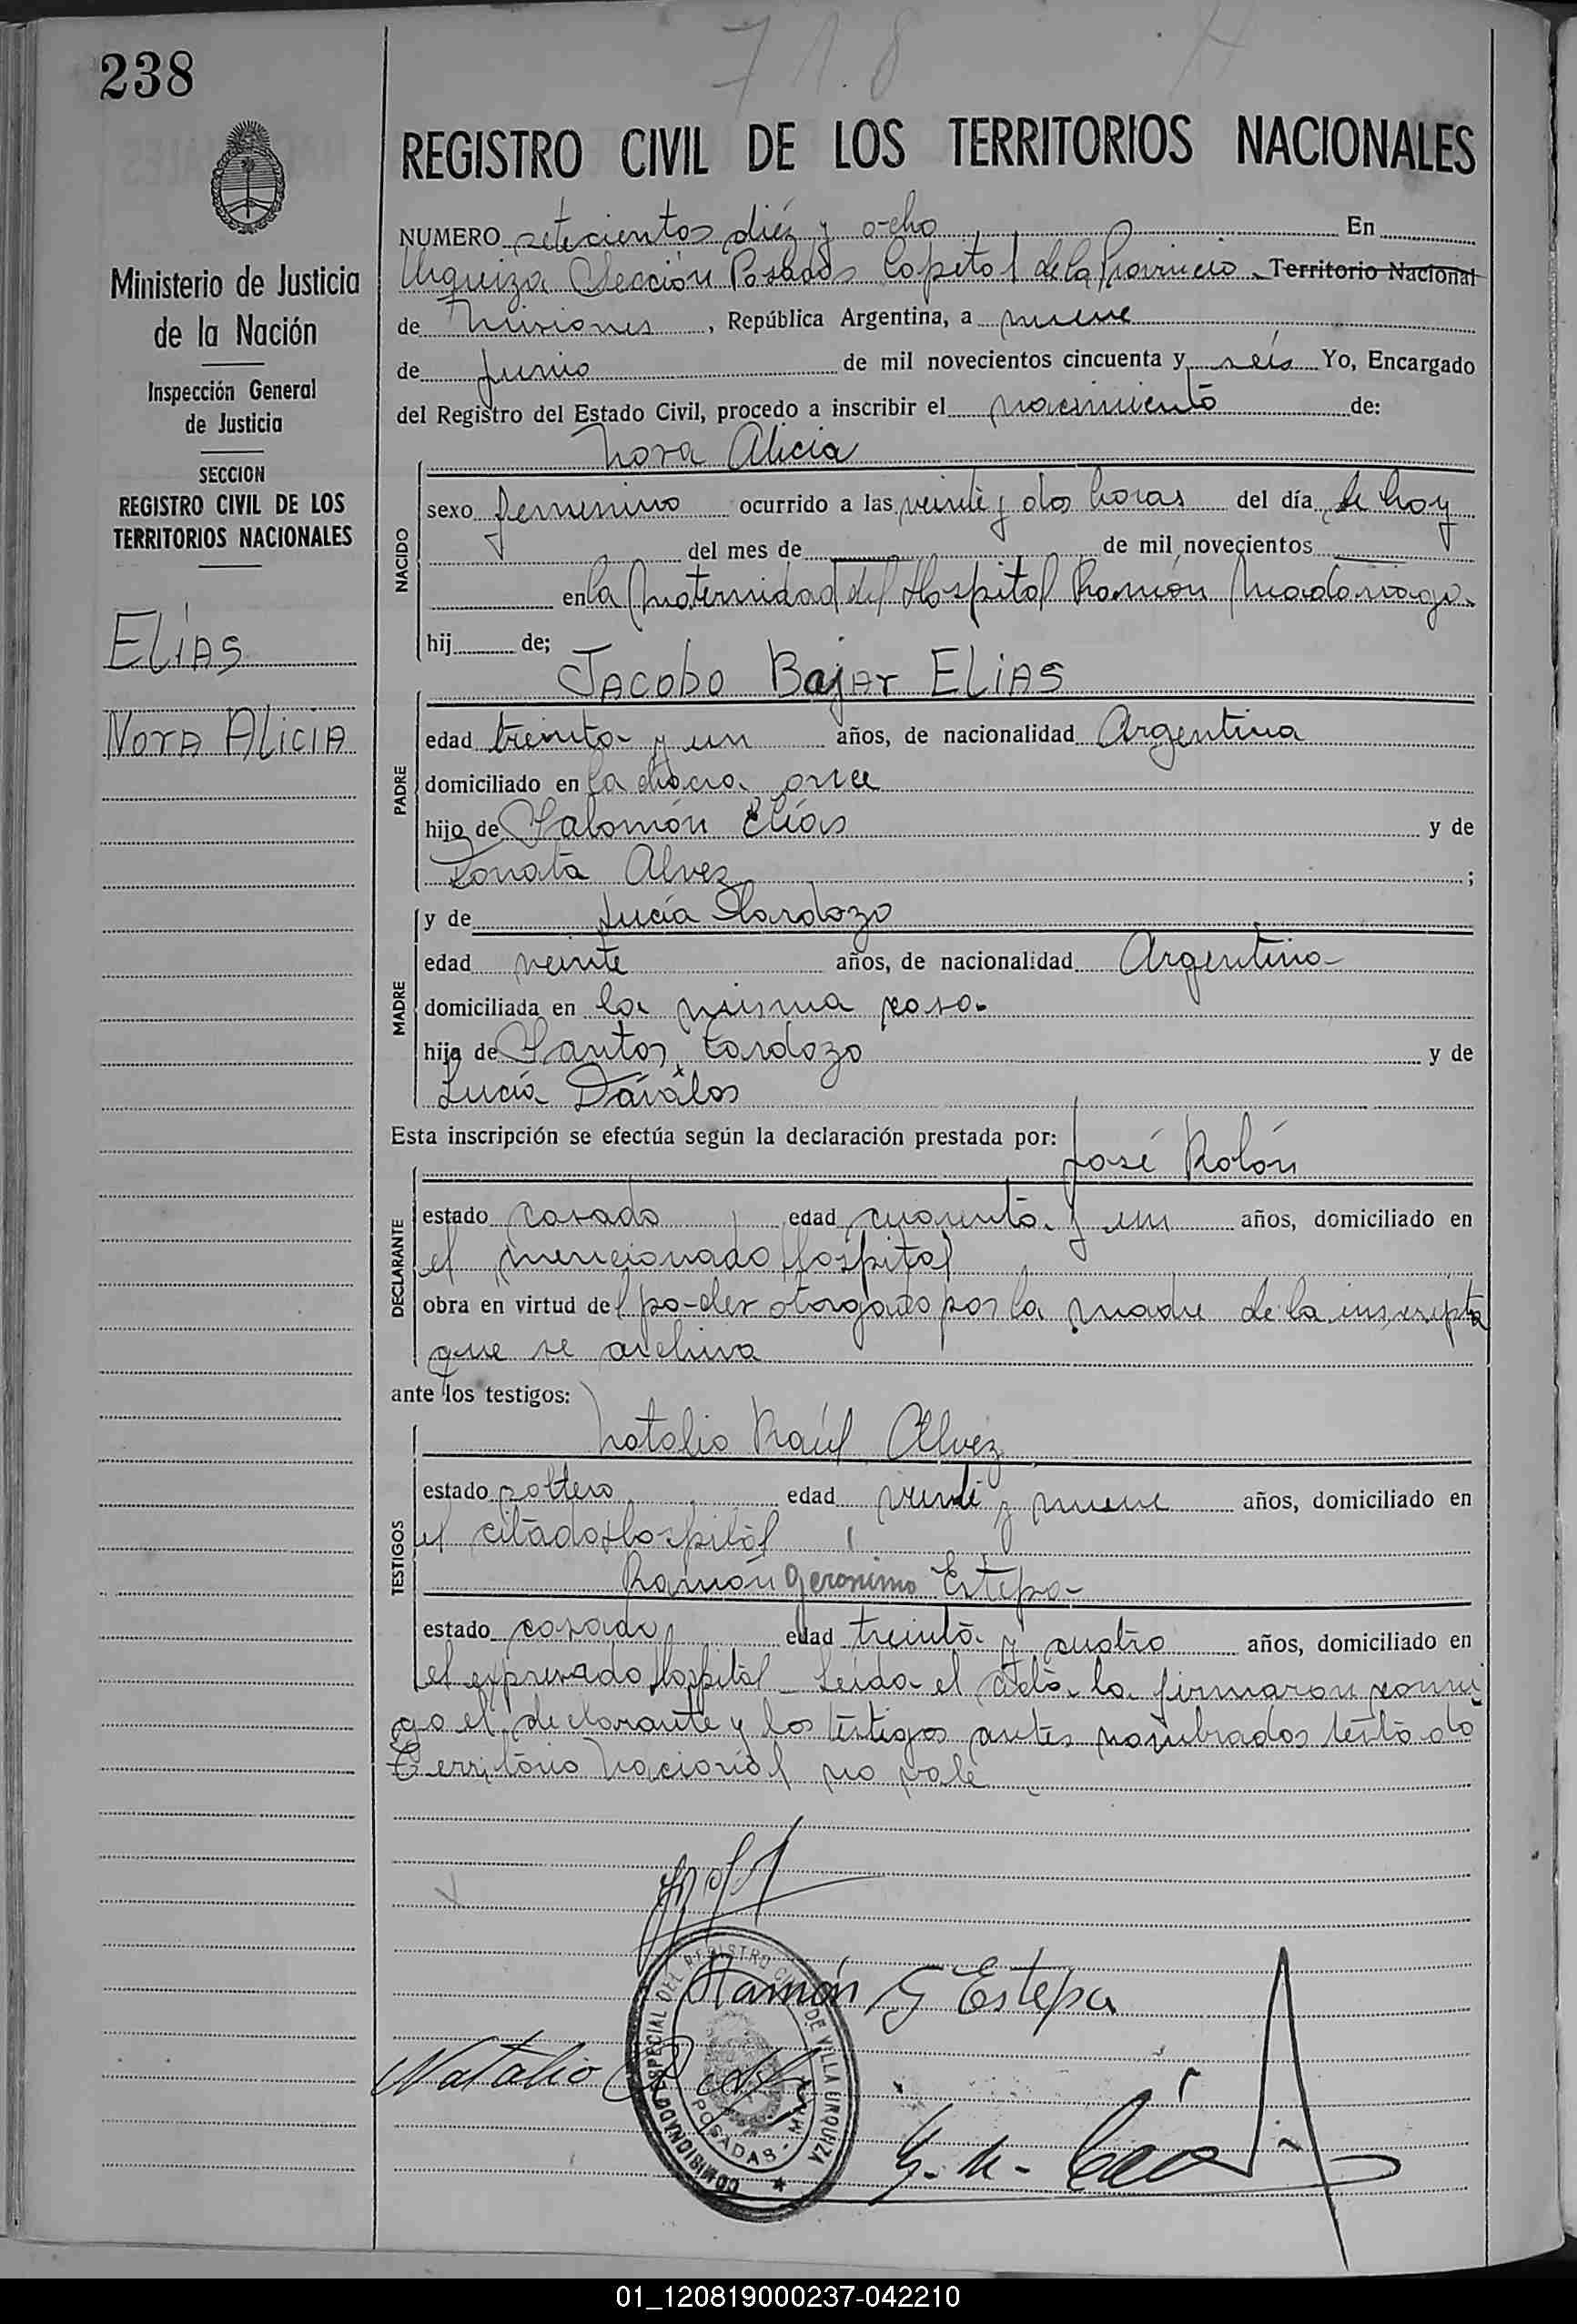 238
718
REGISTRO CIVIL DE LOS TERRITORIOS NACIONALES
Ministerio de Justicia
de la Nación
Inspección General
de Justicia
SECCION
REGISTRO CIVIL DE LOS
TERRITORIOS NACIONALES
ELIAS
NORA ALICIA
NUMERO setecientos diéz y ocho En
Urquiza Sección Posadas Capital de la Provincia Territorio Nacional
de Misiones, República Argentina, a nueve
de Junio de mil novecientos cincuenta y seis Yo, Encargado
del Registro del Estado Civil, procedo a inscribir el nacimiento de:
Nora Alicia
NACIDO
sexo femenino ocurrido a las veinte y dos horas del día de hoy
del mes de de mil novecientos
en la Maternidad del Hospital Ramón Madariaga
hij de;
JACOBO BAjAR ELIAS
PADRE
edad treinta y un años, de nacionalidad Argentina
domiciliado en la chacra once
hijo de Salomón Elías y de
Alvez ;
MADRE
y de Lucía Cardozo
edad veinte años, de nacionalidad Argentina
domiciliada en la misma casa
hija de Santos Cardozo y de
Lucía Dávalos
Esta inscripción se efectúa según la declaración prestada por:
José Rolón
DECLARANTE
estado casado edad cuarenta y un años, domiciliado en
el mencionado Hospital
obra en virtud del poder otorgado por la madre de la inscripta
que se archiva
ante los testigos:
Natalio Raúl Alvez
TESTIGOS
estado soltero edad veinte y nueve años, domiciliado en
el citado Hospital
Ramón Geronimo Estepa
estado casado edad treinta y cuatro años, domiciliado en
el expresado Hospital - Leída el acta la firmaron conmi
go el declarante y los testigos antes nombrados testado
Territorio Nacional no vale
Ramón G Estepa
Natalio R
COMISIONADO ESPECIAL DEL REGISTRO CIVIL DE VILLA URQUIZA
POSADAS - MNES
01_120819000237-042210